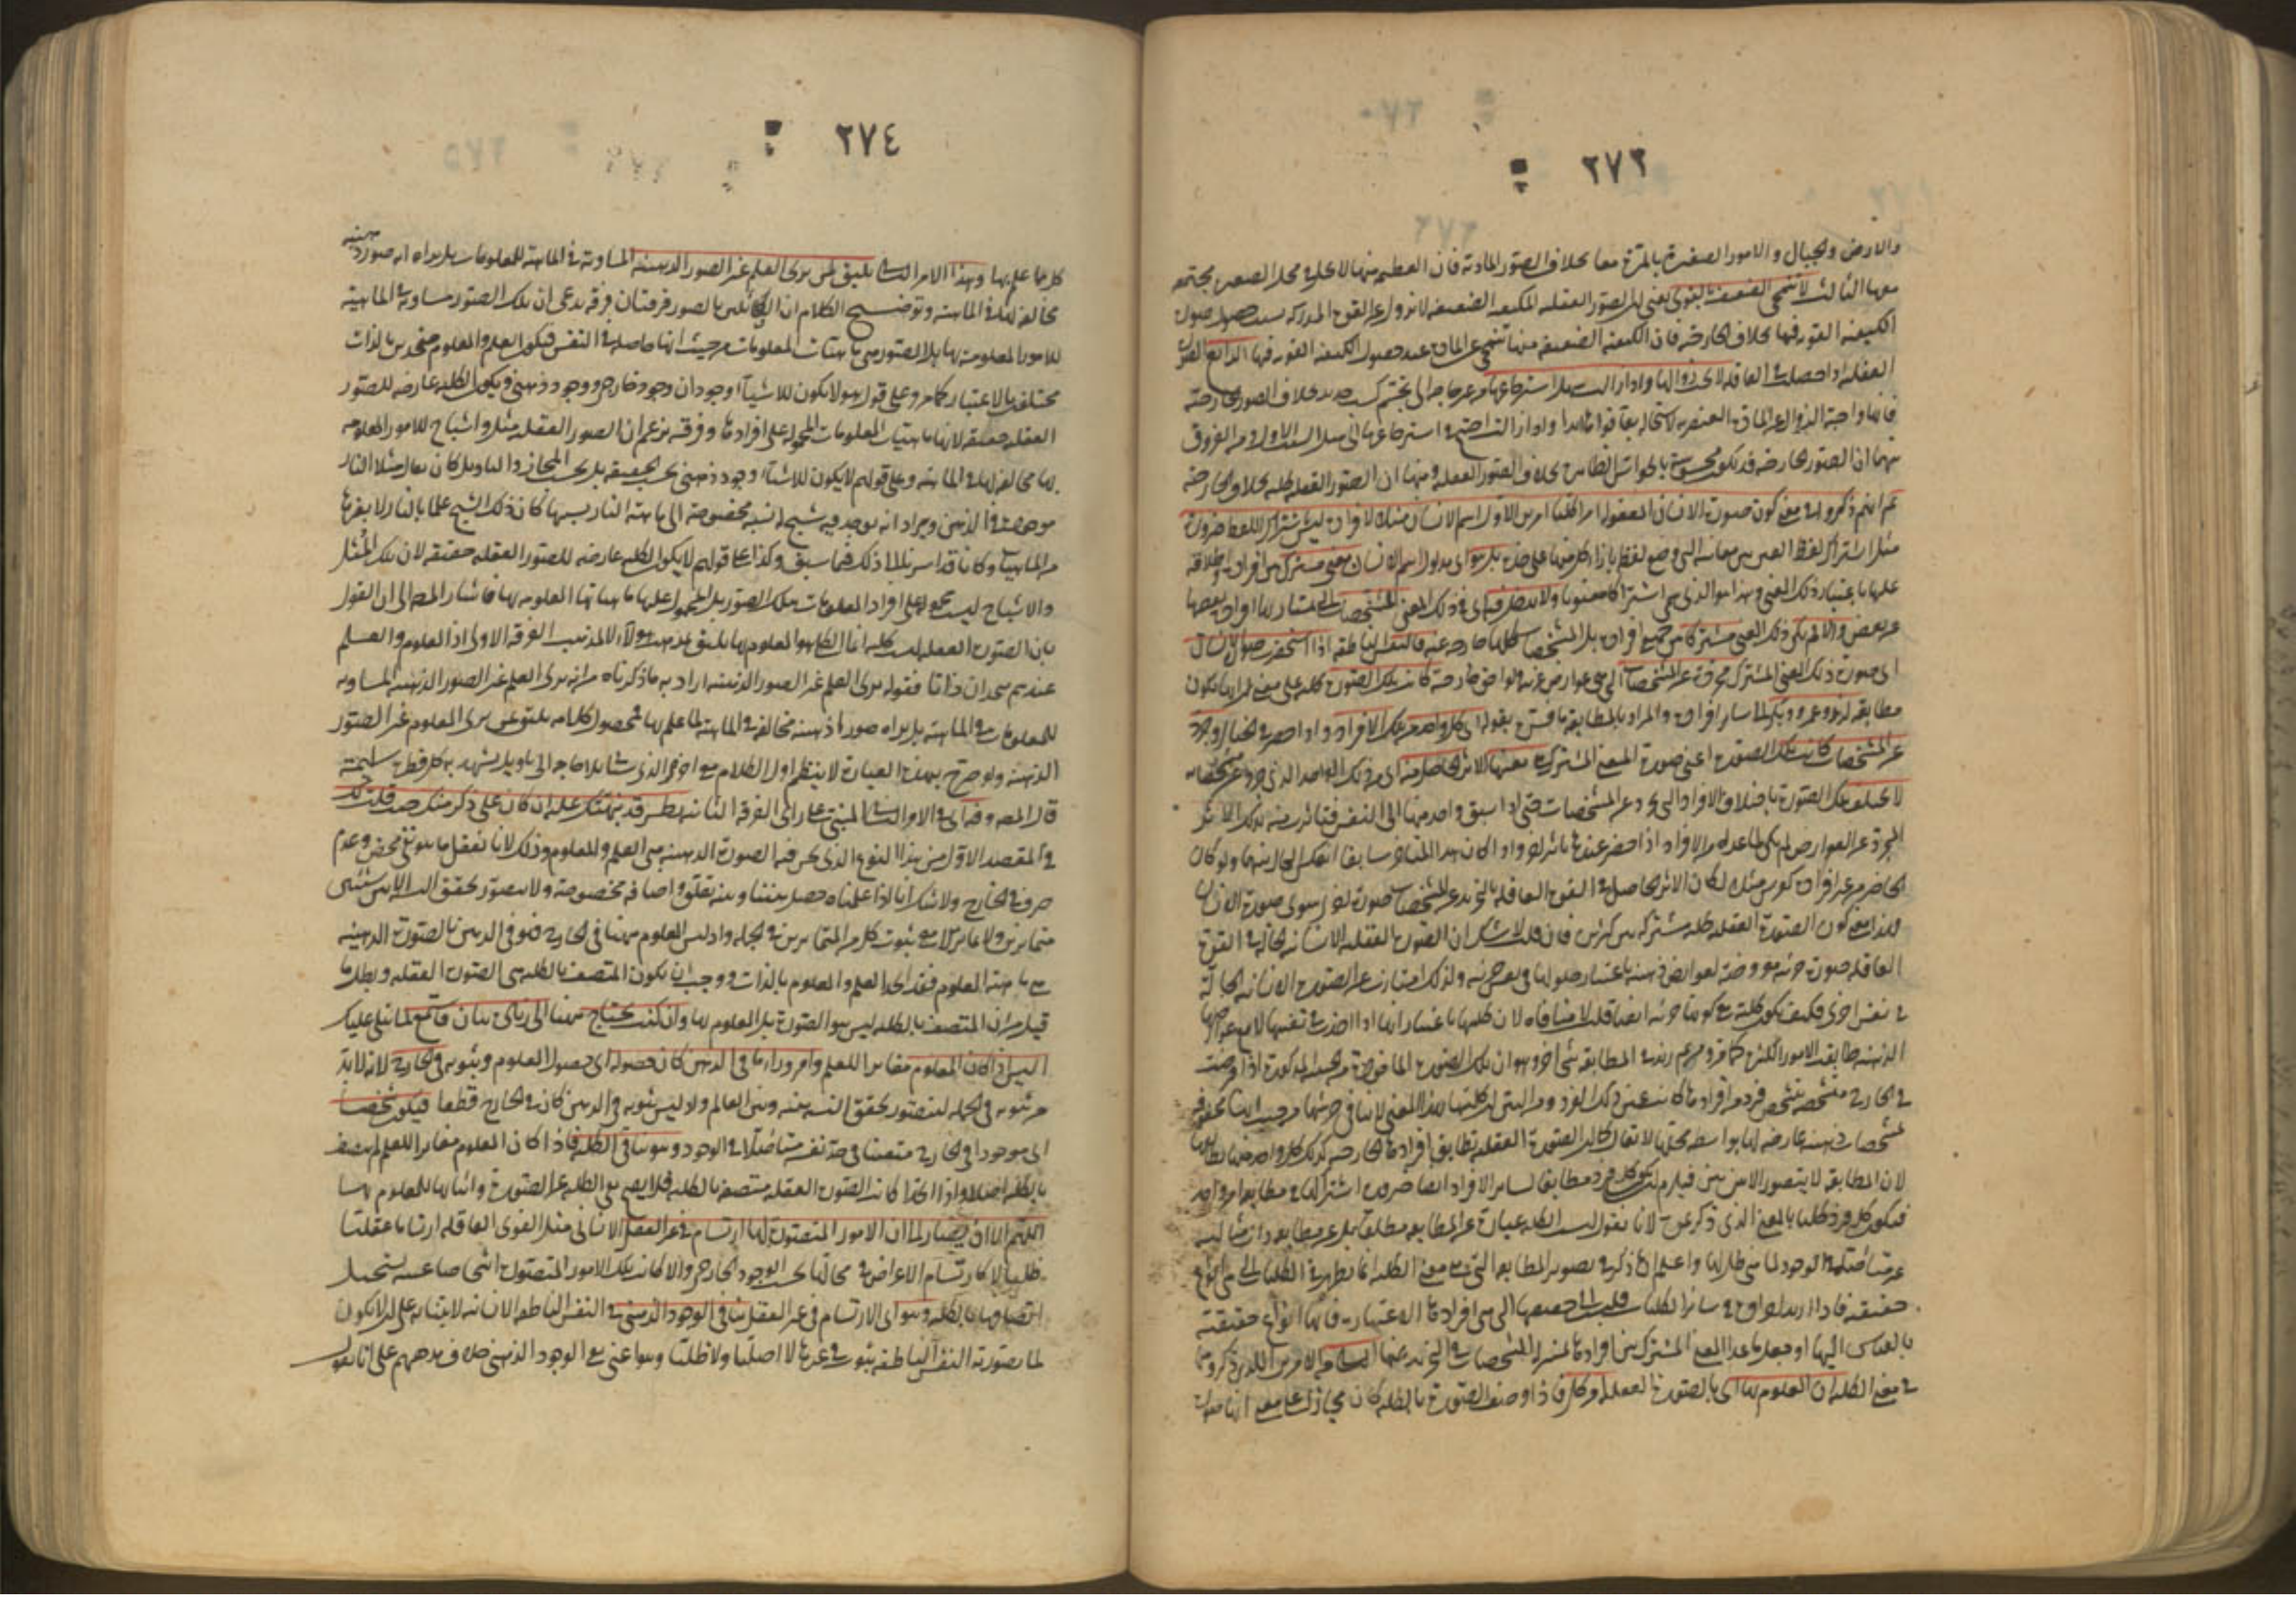 ٢٧٣
والارض والجبال والامور الصغيرة بالمرة معا بخلاف الصور المادية فان العظيم منها لا يحل في محل الصغير مجتمعة
معها الثالث لا تنمحي الضعيفة بالقوي يعني ان الصور العقلية للكيفية الضعيفة لا تزول عن القوة المدركة بسبب حصول صورة
الكيفية القوية فيها بخلاف الخارجية فان الكيفية الضعيفة منها تنمحي عن المادة عند حصول الكيفية القوية فيها الرابع الصورة
العقلية اذا حصلت في العاقلة لا يجب زوالها واذا زالت سهل استرجاعها من غير حاجة الى تجشم كسب جديد بخلاف الصور الخارجية
فانها واجبة الزوال عن المادة العنصرية لاستحالة بقاء قواها ابدا واذا زالت احتيج في استرجاعها الى مثل السبب الاول ومن الفروق
بينهما ان الصور الخارجية قد تكون محسوسة بالحواس الظاهرة بخلاف الصور العقلية ومنها ان الصور العقلية كلية بخلاف الخارجية
ثم انهم ذكروا في معنى كون صورة الانسان المعقولة امرا كليا امرين الاول اسم الانسان مثلا لافراده ليس بالاشتراك اللفظ ضرورة
مثل اشتراك لفظ العين بين معانيه التي وضع لفظها بازاء كل منها على حدة بل هو اي مدلول اسم الانسان معنى مشترك بين افراده اطلاقه
عليها باعتبار ذلك المعنى وهذا هو الذي يسمى اشتراكا معنويا ولا يدخل فيه اي في ذلك المعنى المشخصات التي يمتاز بها افراده بعضها
عن بعض والا لم يكن ذلك المعنى مشتركا بين جميع افراده بل المشخصات كلها خارجة عنه فالنفس الناطقة اذا استحضرت صورة الانسان
اي صورة ذلك المعنى المشترك مجردة عن المشخصات التي هي عوارض غريبة ولواحق خارجة كانت تلك الصورة كلية على معنى انها تكون
مطابقة لزيد وعمرو وبكر الى سائر افراده والمراد بالمطابقة ما فسره بقوله اي كل واحد من تلك الافراد اذا حضر في الخيال وجرد
عن المشخصات كانت تلك الصورة اعني صورة المعنى المشترك بعينها الاثر الحاصل منه اي من ذلك الواحد الذي جرد عن مشخصاته
لا تختلف تلك الصورة باختلاف الافراد التي تجرد عن المشخصات حتى اذا سبق واحد منها الى النفس فتأثرت منه بذلك الاثر
المجرد عن العوارض لم يكن لما عداه من الافراد اذا حضر عندها تأثير اخر واذا كان هذا المتأخر سابقا انعكس الحال بينهما ولو كان
الحاضر من غير افراده كفرس مثلا لكان الاثر الحاصل في القوة العاقلة بالتجريد عن المشخصات صورة اخرى سوى صورة الانسان
فهذا معنى كون الصورة العقلية كلية مشتركة بين كثيرين فان قلت لا شك ان الصورة العقلية الانسانية الحالة في القوة
العاقلة صورة جزئية معروضة لعوارض ذهنية باعتبار حلولها في نفس جزئية ولذلك امتازت عن الصورة الانسانية الحالة
في نفس اخرى فكيف تكون كلية مع كونها جزئية ايضا قلت لا منافاة لان كليتها باعتبار انها اذا اخذت في نفسها لا مع عوارضها
الذهنية طابقت الامور الكثيرة كما قرره ثم زيد في المطابقة شيء اخر وهو ان تلك الصورة الماخوذة من حيث المذكورة اذا فرضت
في الخارج متشخصة بتشخص فرد من افرادها كانت عين ذلك الفرد ومن البين ان كليتها بهذا المعنى لا ينافي جزئيتها من حيث انها محفوفة
بمشخصات ذهنية عارضة لها بواسطة محلها لا يقال كما ان الصورة العقلية تطابق افرادها الخارجية كذلك كل واحد منها يطابقها
لان المطابقة لا يتصور الا من بين فيلزم ان يكون كل فرد مطابقا لسائر الافراد ايضا ضرورة اشتراكها في مطابقة امر واحد
فيكون كل فرد كليا بالمعنى الذي ذكرتموه لانا نقول ليست الكلية عبارة عن المطابقة مطلقا بل عن مطابقة ذات مثالية
غير متأصلة في الوجود لما هي ظل لها واعلم ان ما ذكر في تصوير المطابقة التي هي معنى الكلية انما يظهر في الكليات التي هي انواع
حقيقية فاذا اريد اجراؤه في سائر الكليات قلب الى حصصها التي هي افرادها الاعتبارية فانها انواع حقيقية
بالقياس اليها او جعل ما عدا المعنى المشترك بين افرادها بمنزلة المشخصات في التجريد عنها الثاني من الامرين اللذين ذكروهما
في معنى الكلية ان المعلوم بها اي بالصورة العقلية امر كلي فاذا وصف الصورة بالكلية كان مجازا على معنى انها صورة
٢٧٤
كلي ما علم بها وهذا الامر الثاني يليق بمن يرى العلم غير الصور الذهنية المساوية في الماهية للمعلومات بل يراه انه صورة ذهنية
مخالفة لها في الماهية وتوضيح الكلام ان القائلين بالصور فرقتان فرقة يدعي ان تلك الصور مساوية في الماهية
للامور المعلومة بها بل الصور هي ماهيات المعلومات من حيث انها حاصلة في النفس فيكون العلم والمعلوم متحدين بالذات
مختلفين بالاعتبار كما مر وعلى قول هؤلاء يكون للاشياء وجودان وجود خارجي ووجود ذهني ويكون الكلية عارضة للصور
العقلية حقيقة لانها ماهيات المعلومات المحمولة على افرادها وفرقة يزعم ان الصور العقلية مثل واشباح للامور المعلومة
بها مخالفة لها في الماهية وعلى قولهم لا يكون للاشياء وجود ذهني بحسب الحقيقة بل بحسب المجاز والتاويل كان يقال مثلا النار
موجودة في الذهن ويراد انه يوجد فيه شبح له نسبة مخصوصة الى ماهية النار بسببها كان ذلك الشبح علما بالنار لا بغيرها
من الماهيات وكانا قد اشرنا الى ذلك فيما سبق وكذا على قولهم لا يكون الكلية عارضة للصور العقلية حقيقة لان تلك المثل
والاشباح ليست محمولة على افراد المعلومات بتلك الصور بل المحمول عليها ماهياتها المعلومة بها فاشار المصنف الى ان القول
بان الصورة العقلية ليست كلية انما الكلي هو المعلوم بها يليق بمذهب هؤلاء لا بمذهب الفرقة الاولى اذ المعلوم والعلم
عندهم متحدان ذاتا فقوله يرى العلم غير الصور الذهنية اراد به ما ذكرناه من انه يرى العلم غير الصور الذهنية المساوية
للمعلومات في الماهية بل يراه صورا ذهنية مخالفة في الماهية لما علم بها فمحصول كلامه يليق بمن يرى المعلوم غير الصور
الذهنية ولو صرح بهذه العبارة لانتظم اول الكلام مع اخره الذي سيأتي بلا حاجة الى تاويل يشهد به كل فطرة سليمة
قال المصنف وفيه اي في الامر الثاني المبني على راي الفرقة الثانية نظر قد نبهتك عليه ان كان على ذكر منك حيث قلت لك
في المقصد الاول من هذا النوع الذي نحن فيه الصورة الذهنية هي العلم والمعلوم وذلك لانا نعقل ما هو نفي محض وعدم
صرف في الخارج ولا شك انا اذا علمناه حصل بيننا وبينه تعلق واضافة مخصوصة ولا يتصور تحقق النسبة الا بين شيئين
متمايزين ولا تمايز الا مع ثبوت كل من المتمايزين في الجملة واذ ليس المعلوم ههنا في الخارج فهو في الذهن فالصورة الذهنية
هي ماهية المعلوم فقد اتحد العلم والمعلوم بالذات ووجب ان يكون المتصف بالكلية هي الصورة العقلية وبطل ما
قيل من ان المتصف بالكلية ليس هو الصورة بل المعلوم بها وان كنت تحتاج ههنا الى زيادة بيان فاستمع لما يتلى عليك
اليس اذا كان المعلوم مغايرا للعلم وامرا وراء ما في الذهن كان حصوله اي حصول المعلوم وثبوته في الخارج لانه لا بد
من ثبوته في الجملة ليتصور تحقق النسبة بينه وبين العالم واذ ليس ثبوته في الذهن كان في الخارج قطعا فيكون شخصا
اي موجودا في الخارج متعينا في حد نفسه متأصلا في الوجود وهو ينافي الكلية فاذا كان المعلوم مغايرا للعلم لم يتصف
بالكلية اصلا واذا اتحدا كانت الصورة العقلية متصفة بالكلية فلا يصح نفي الكلية عن الصورة واثباتها للمعلوم بها
اللهم الا ان يصار الى ان الامور المتصورة لها ارتسام في غير العقل الانساني مثل القوى العاقلة ارتساما عقليا
ظليا لا كارتسام الاعراض في محالها بحسب الوجود الخارجي والا كانت تلك الامور المتصورة اشخاصا عينية يستحيل
اتصافها بالكلية وهو اي الارتسام في غير العقل ينافي الوجود الذهني في النفس الناطقة الانسانية لابتنائه على ان لا يكون
لما يتصوره النفس الناطقة ثبوت في غيرها لا اصليا ولا ظليا وهو اعني نفي الوجود الذهني خلاف مذهبهم على انا نقول